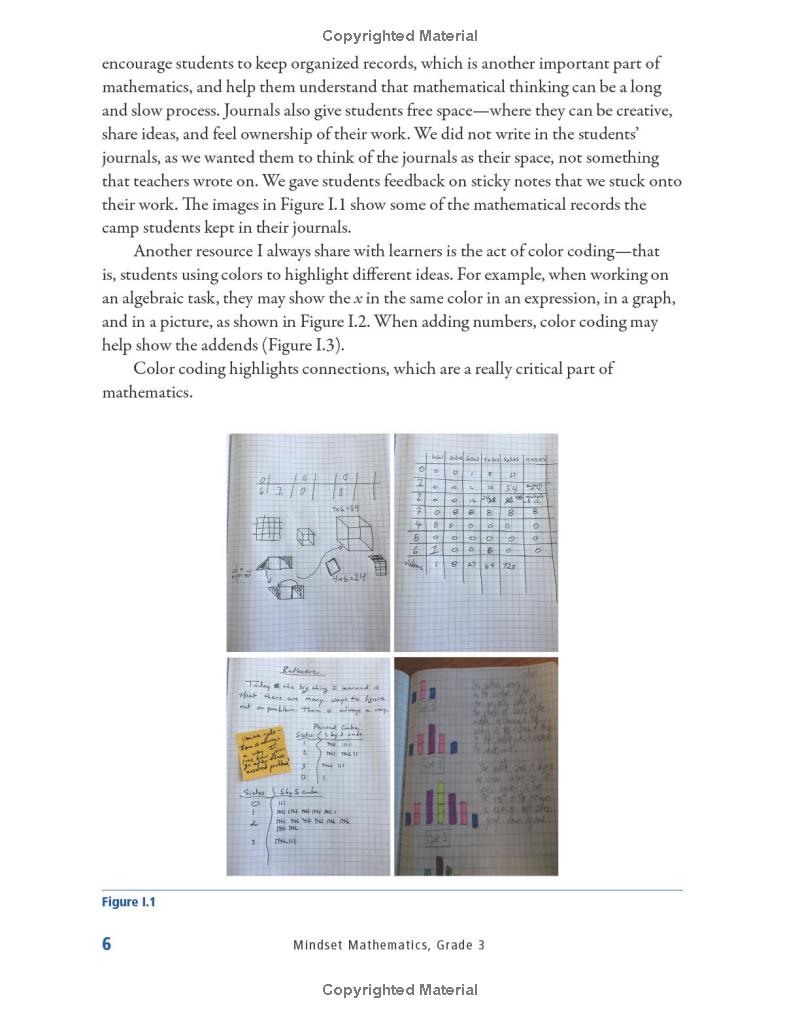 Copyrighted Material
encourage students to keep organized records, which is another important part of
mathematics, and help them understand that mathematical thinking can be a long
and slow process. Journals also give students free space—where they can be creative,
share ideas, and feel ownership of their work. We did not write in the students’
journals, as we wanted them to think of the journals as their space, not something
that teachers wrote on. We gave students feedback on sticky notes that we stuck onto
their work. The images in Figure I.1 show some of the mathematical records the
camp students kept in their journals.
Another resource I always share with learners is the act of color coding—that
is, students using colors to highlight different ideas. For example, when working on
an algebraic task, they may show the x in the same color in an expression, in a graph,
and in a picture, as shown in Figure I.2. When adding numbers, color coding may
help show the addends (Figure I.3).
Color coding highlights connections, which are a really critical part of
mathematics.
9x6=54
4x6=24
0 0 0 1 8 27
3 0 8 8 8 8 8
4 0 0 0 0 0 0
5 0 0 0 0 0 0
6 1 0 0 0 0 0
1 8 27 64
Reflective
Today the big thing I learned is
that there are many ways to figure
out a problem. There is always a way.
Painted Cube
Sides 3 by 3 cube
1
2
3
0
Sides 5 by 5 cube
0
1
2
3
Figure I.1
6 Mindset Mathematics, Grade 3
Copyrighted Material